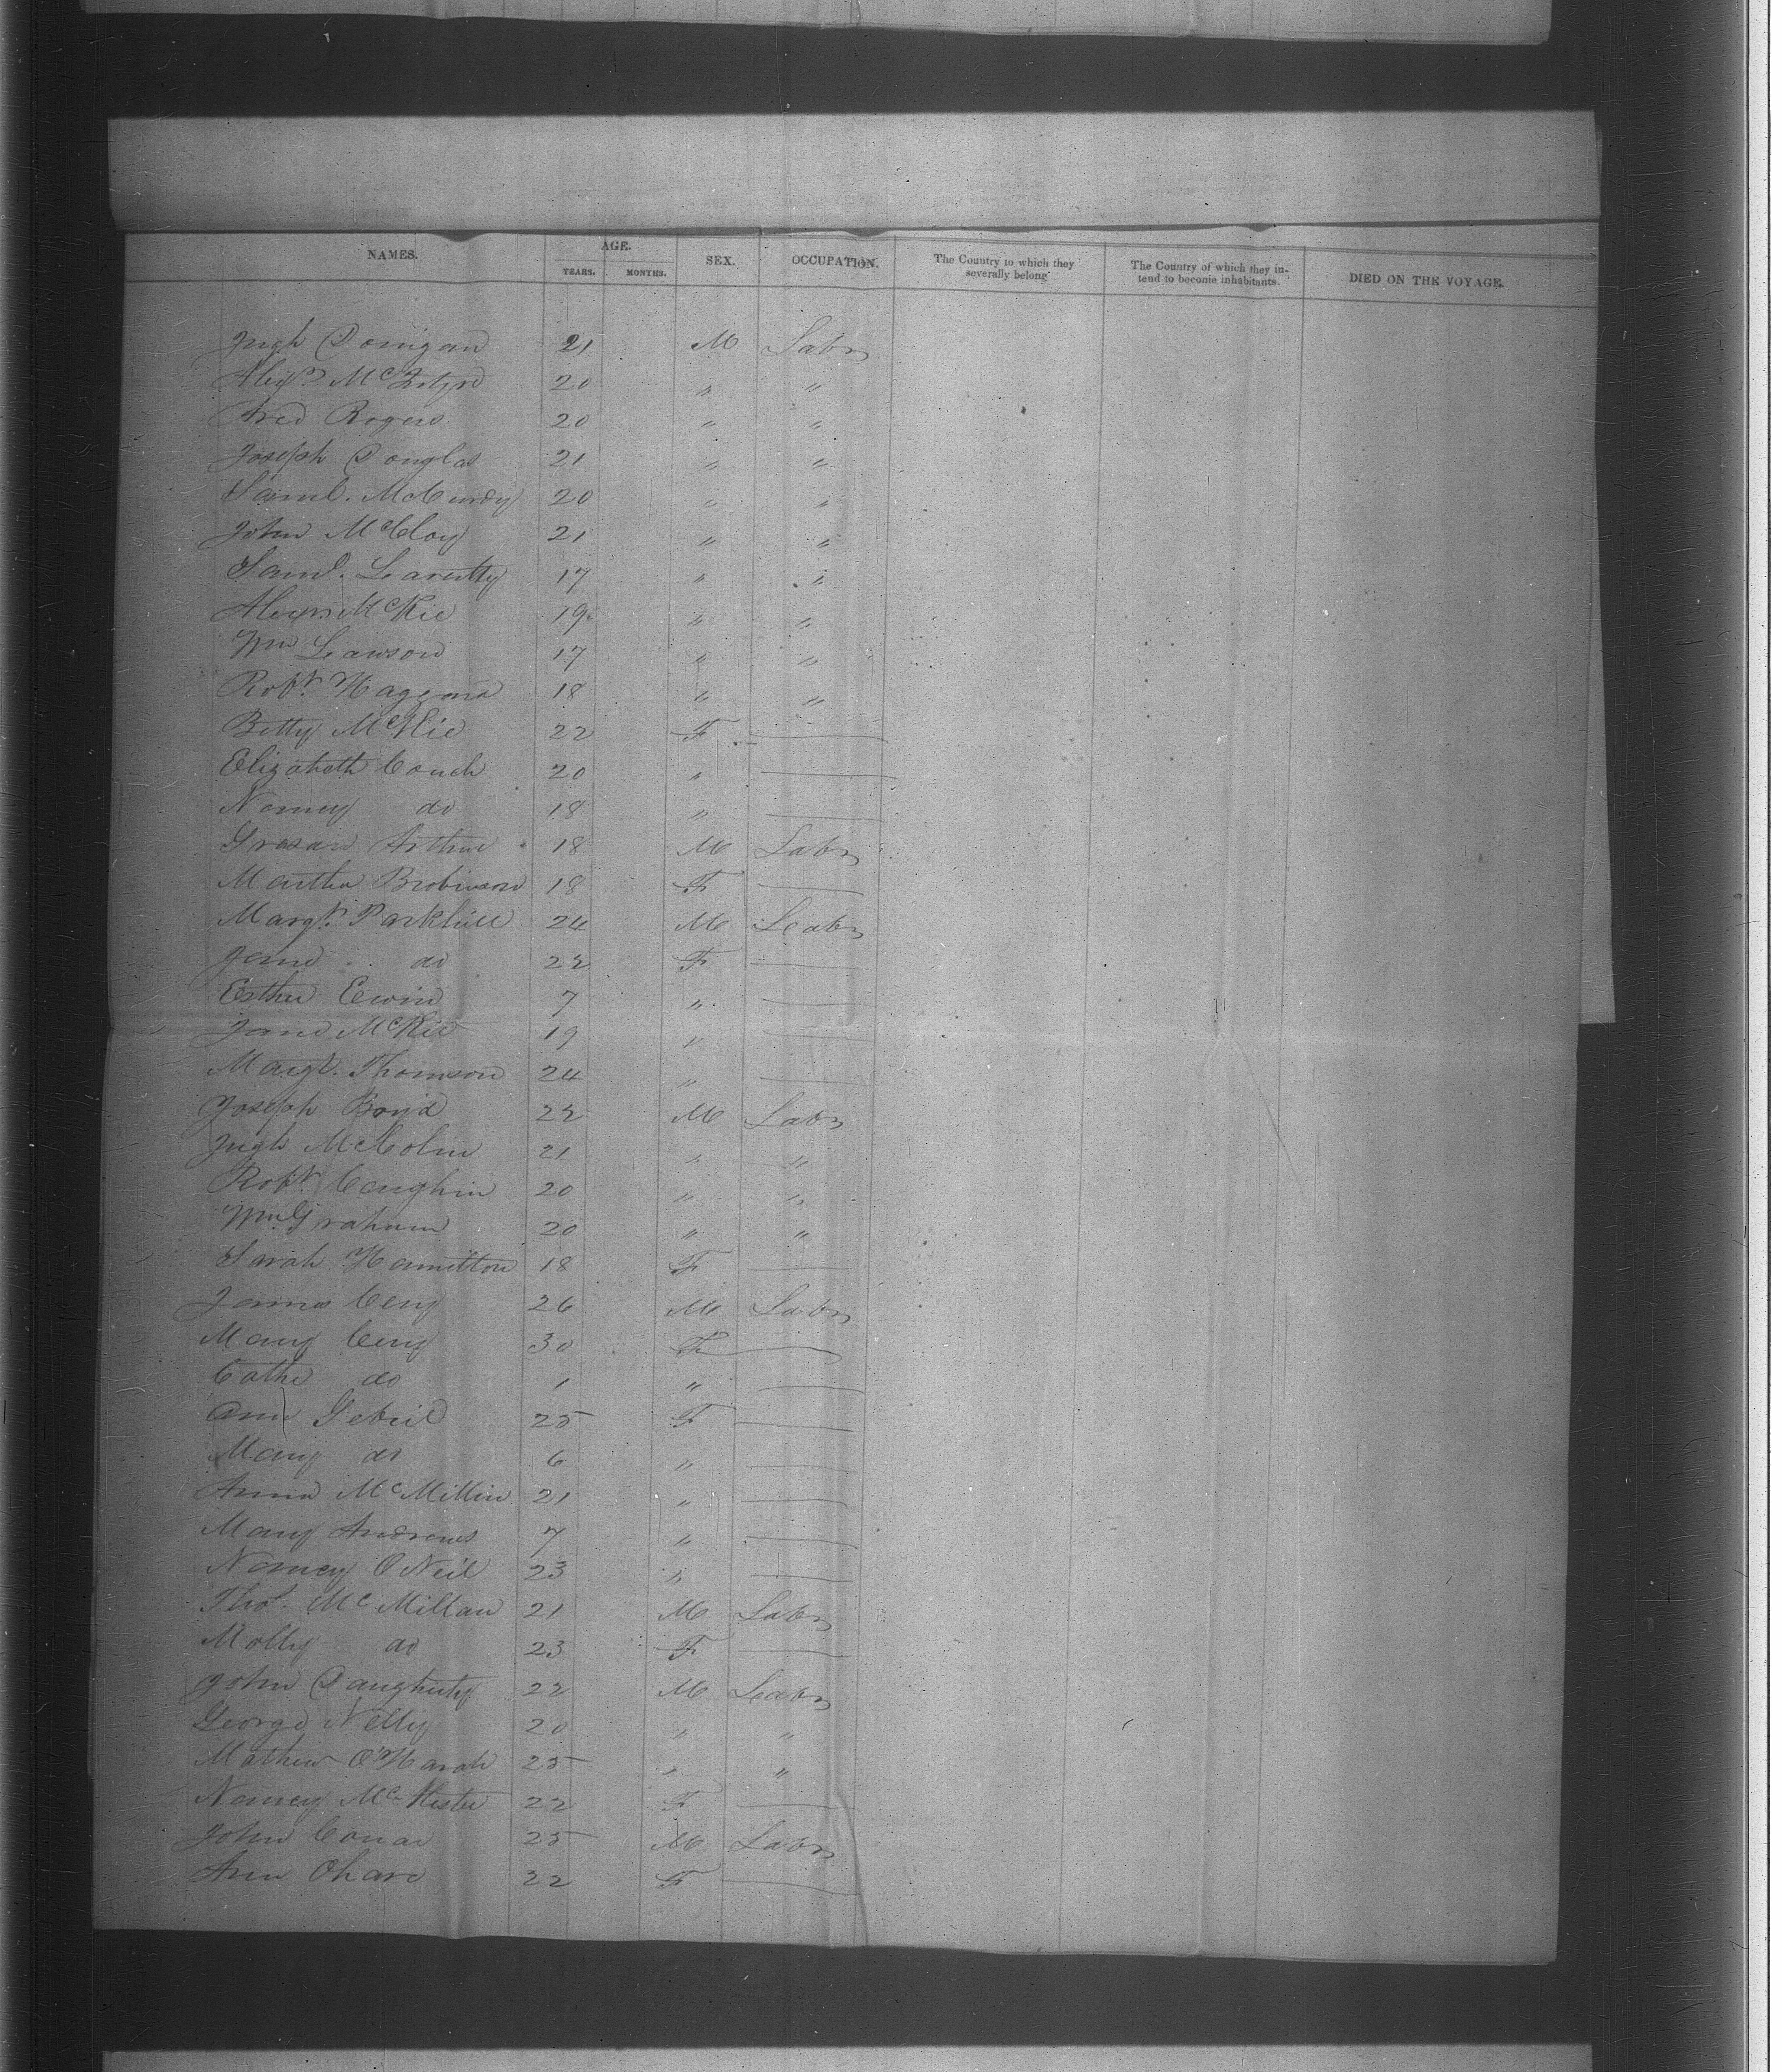 NAMES. AGE. YEARS. MONTHS. SEX. OCCUPATION. The Country to which they severally belong The Country of which they intend to become inhabitants. DIED ON THE VOYAGE.
Hugh Donigan 21 M Labr
Alexr McIntyre 20 " "
Fred Rogers 20 " "
Joseph Douglas 21 " "
Saml. McCurdy 20 " "
John McCloy 21 " "
Saml. 17 " "
Alexr McKie 19 " "
Wm Lawson 17 " "
Robt. 18 " "
Betty McKie 22 F
Elizabeth Couch 20 "
Nancy do 18 "
Arthur 18 M Labr
Martha 18 F
Margt. Parkhill 24 M Labr
Jane do 22 F
Esther Ewin 7 "
Jane McKie 19 "
Margt. Thomson 24 "
Joseph Boyd 22 M Labr
Hugh McColm 21 " "
Robt. Caughin 20 " "
Wm Graham 20 " "
Sarah Hamilton 18 F
James 26 M Labr
Mary 30 F
Cathe do 1 "
Ann 25 F
Mary do 6 "
Anna McMillin 21 "
Mary Andrews 7 "
Nancy O Neil 23 "
Thos. McMillan 21 M Labr
Molly do 23 F
John Daugherty 22 M Labr
George Nelly 20 " "
Mathew O'Harah 25 " "
Nancy 22 F
John 25 M Labr
Ann Oharo 22 F